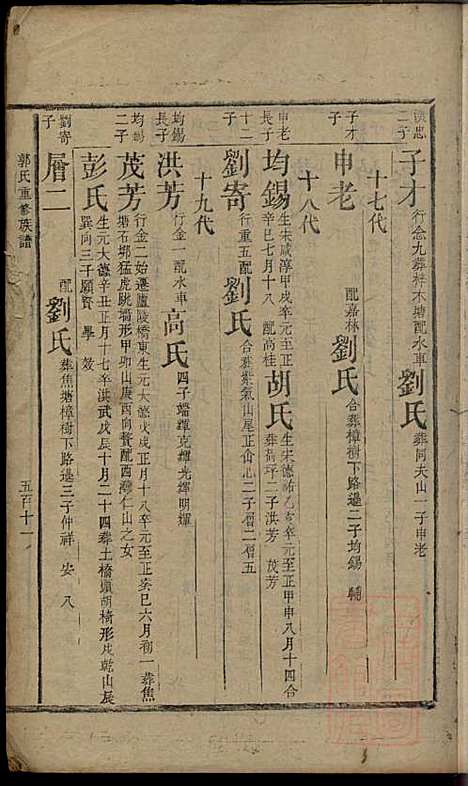 子才 行念九葬梓木塘配水車劉氏葬同夫山一子申老
十七代
子才
子
申老 配嘉林劉氏合葬樟樹下路邊二子均錫 輔
十八代
申老
長子
均錫 生宋咸淳甲戌卒元至正辛巳七月十八 配高桂胡氏 生宋德祐乙亥卒元至正甲申八月十四合葬 二子洪芳 茂芳
十二
子
劉寄 行重五配劉氏合葬紫氣山尾正 二子層二層五
十九代
均錫
長子
洪芳 行金一配水車高氏四子 克輝光輝明輝
均錫
二子
茂芳 行金二始遷廬陵橋東生元大德戊戌正月十八卒元至正癸巳六月初一葬焦塘石塅猛虎跳墻形甲卯山庚酉向贅配酉灘仁山之女
彭氏 生元大德辛丑正月十七卒洪武戊辰十月二十四葬土橋塅胡椅形戌乾山辰巽向三子願賢 學 效
劉寄
子
層二 配劉氏葬焦塘樟樹下路邊三子仲祥 安 八
郭氏重修族譜
五百十一